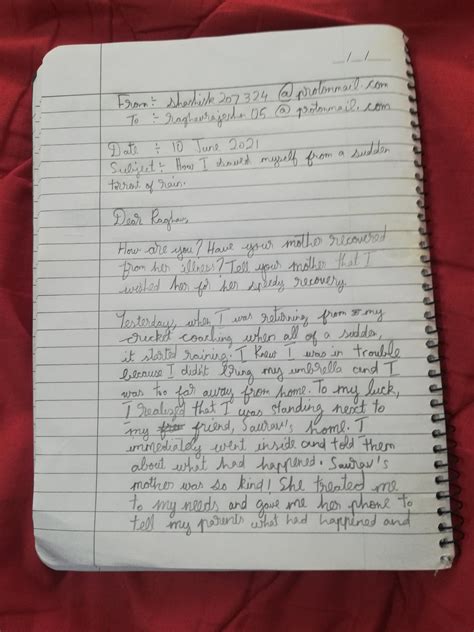 __/__/__
From :- shashisk207324@protonmail.com
To :- raghavrajeshn05@protonmail.com
Date :- 10 June 2021
Subject :- How I saved myself from a sudden
torrst of rain.
Dear Raghav,
How are you? Have your mother recovered
from her illness? Tell your mother that I
wished her for her speedy recovery.
Yesterday, when I was returning from my
cricket coaching when all of a sudden,
it started raining. I knew I was in trouble
because I didn't bring my umbrella and I
was too far away from home. To my luck,
I realized that I was standing next to
my friend, Saurav's home. I
immediately went inside and told them
about what had happened. Saurav's
mother was so kind! She treated me
to my needs and gave me her phone to
tell my parents what had happened and